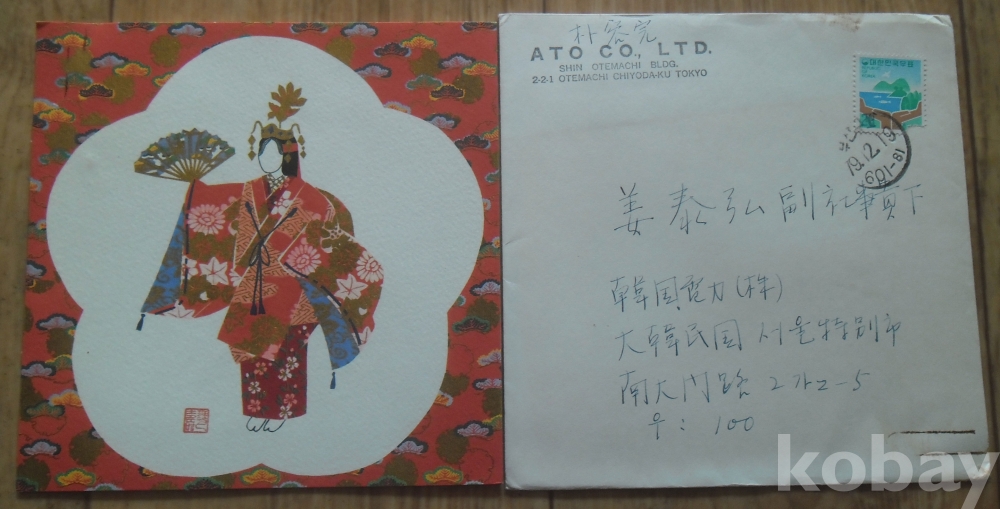 朴容完
ATO CO., LTD.
SHIN OTEMACHI BLDG.
2-2-1 OTEMACHI CHIYODA-KU TOKYO
대한민국우표
79.12.19
601-81
姜泰弘 副社長 貴下
韓国電力(株)
大韓民国 서울特別市
南大門路 2가 2-5
우: 100
kobay